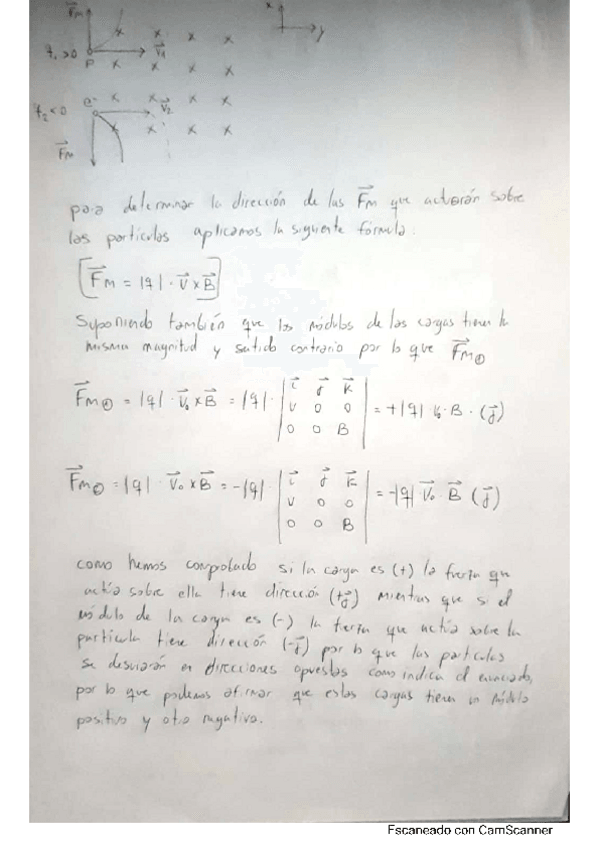 F⃗m
x
y
q₁>0
V⃗₁
P
e⁻
q₂<0
V⃗₂
F⃗m
para determinar la dirección de las F⃗m que actuarán sobre
las partículas aplicamos la siguiente fórmula.
[F⃗m = |q| · V⃗ x B⃗]
Suponiendo también que los módulos de las cargas tienen la
misma magnitud y sentido contrario por lo que F⃗m⊕
F⃗m⊕ = |q| · V⃗₀ x B⃗ = |q| · | i⃗ j⃗ k⃗ | = +|q| V₀ · B · (j⃗)
v 0 0
0 0 B
F⃗m⊖ = |q| · V⃗₀ x B⃗ = -|q| · | i⃗ j⃗ k⃗ | = -|q| V⃗₀ · B⃗ (j⃗)
v 0 0
0 0 B
como hemos comprobado si la carga es (+) la fuerza que
actúa sobre ella tiene dirección (+j⃗) mientras que si el
módulo de la carga es (-) la fuerza que actúa sobre la
partícula tiene dirección (-j⃗) por lo que las partículas
se desviarán en direcciones opuestas como indica el enunciado,
por lo que podemos afirmar que estas cargas tienen un módulo
positivo y otro negativo.
Escaneado con CamScanner